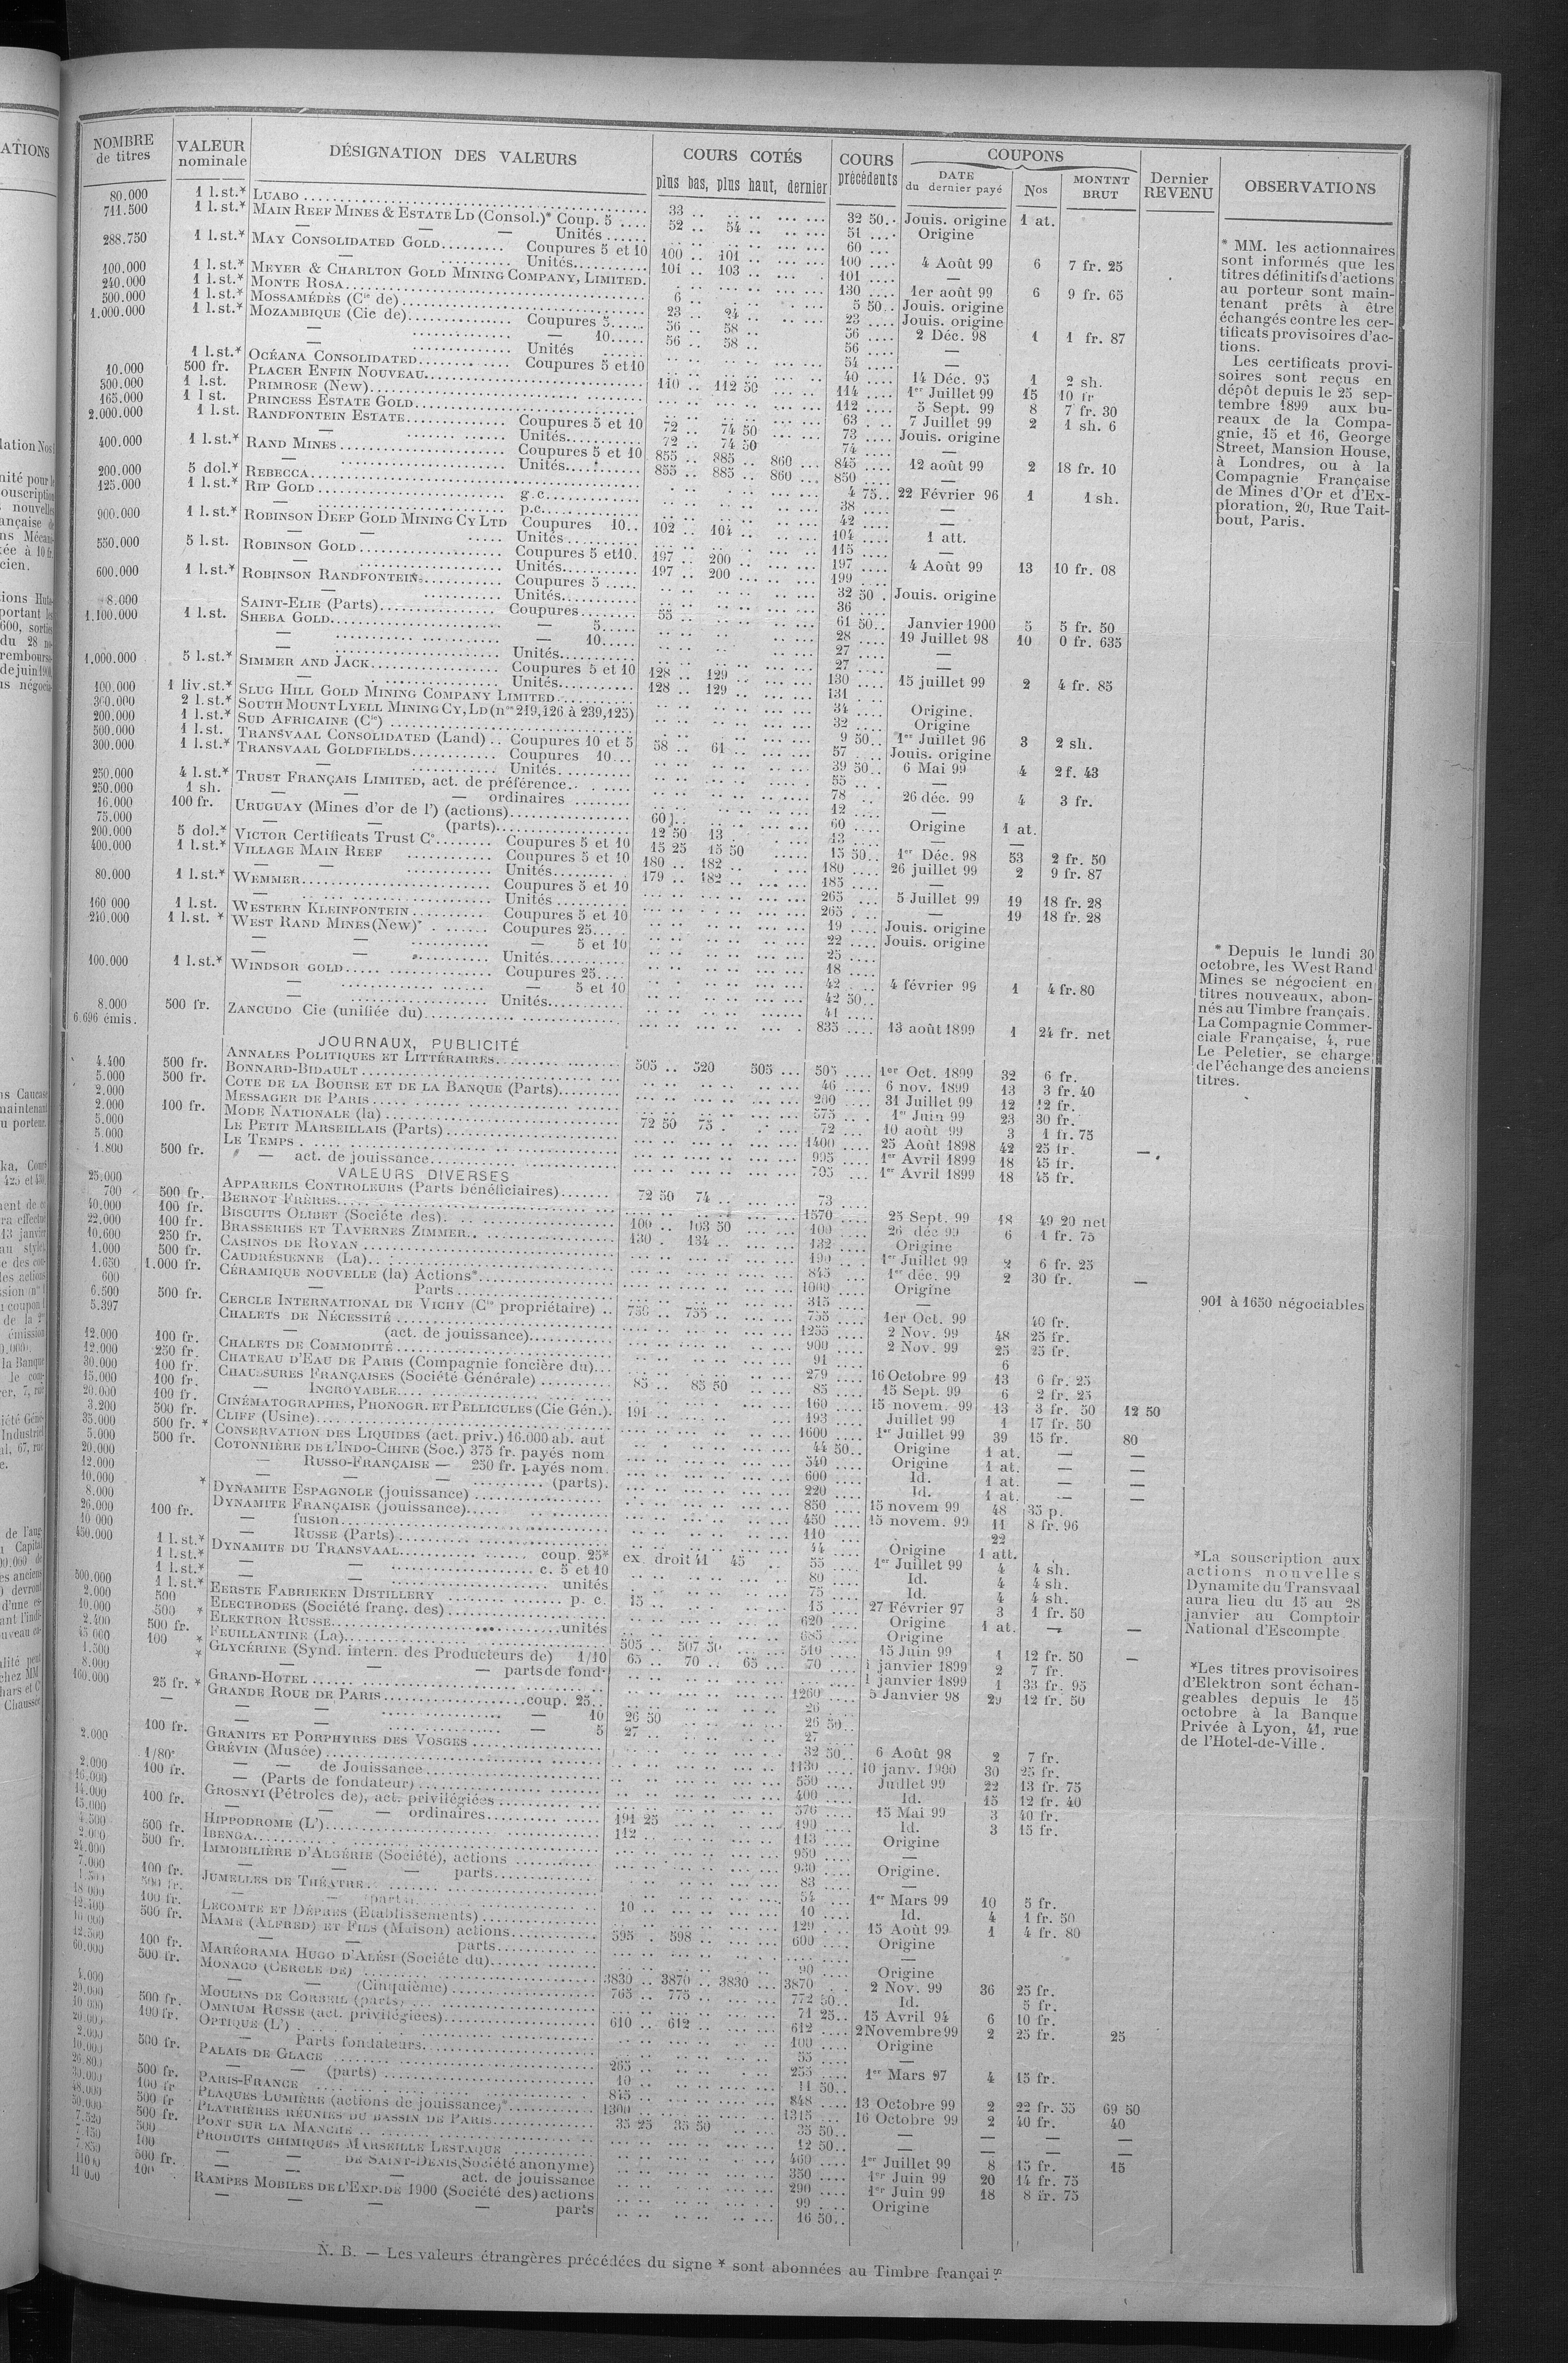 NOMBRE de titres | VALEUR nominale | DÉSIGNATION DES VALEURS | COURS COTÉS plus bas, plus haut, dernier | COURS précédents | COUPONS DATE du dernier payé | Nos | MONTNT BRUT | Dernier REVENU | OBSERVATIONS
80.000 1 l.st.* LUABO 33 .. 32 50.. Jouis. origine 1 at.
711.500 1 l.st.* MAIN REEF MINES & ESTATE LD (Consol.)* Coup. 5 52 .. 54 .. 51 .... Origine
— — — Unités 60 ....
288.750 1 l.st.* MAY CONSOLIDATED GOLD Coupures 5 et 10 100 .. 101 .. 100 .... 4 Août 99 6 7 fr. 25
— Unités 101 .. 103 .. 101 .... —
100.000 1 l.st.* MEYER & CHARLTON GOLD MINING COMPANY, LIMITED. 130 .... 1er août 99 6 9 fr. 65
240.000 1 l.st.* MONTE ROSA 6 .. 5 50.. Jouis. origine
500.000 1 l.st.* MOSSAMÉDÈS (Cie de) 23 .. 24 .. 23 .... Jouis. origine
1.000.000 1 l.st.* MOZAMBIQUE (Cie de) Coupures 5 56 .. 58 .. 56 .... 2 Déc. 98 1 1 fr. 87
— — 10 56 .. 58 .. 56 .... —
— Unités 54 ....
1 l.st.* OCÉANA CONSOLIDATED Coupures 5 et 10 40 .... 14 Déc. 95 1 2 sh.
10.000 500 fr. PLACER ENFIN NOUVEAU 110 .. 112 50 114 .... 1er Juillet 99 15 10 fr
500.000 1 l.st. PRIMROSE (New) 112 .... 5 Sept. 99 8 7 fr. 30
165.000 1 l st. PRINCESS ESTATE GOLD 63 .... 7 Juillet 99 2 1 sh. 6
2.000.000 1 l.st. RANDFONTEIN ESTATE Coupures 5 et 10 72 .. 74 50 73 .... Jouis. origine
— Unités 72 .. 74 50 74 .... —
400.000 1 l.st.* RAND MINES Coupures 5 et 10 855 .. 885 .. 860 ... 845 .... 12 août 99 2 18 fr. 10
— Unités 855 .. 885 .. 860 ... 850 .... —
200.000 5 dol.* REBECCA 4 75.. 22 Février 96 1 1 sh.
125.000 1 l.st.* RIP GOLD g.c. 38 .... —
p.c. 42 .... —
900.000 1 l.st.* ROBINSON DEEP GOLD MINING CY LTD Coupures 10.. 102 .. 104 .. 104 .... 1 att.
— Unités 115 .... —
550.000 5 l.st. ROBINSON GOLD Coupures 5 et10. 197 .. 200 .. 197 .... 4 Août 99 13 10 fr. 08
— Unités 197 .. 200 .. 199 ....
600.000 1 l.st.* ROBINSON RANDFONTEIN Coupures 5 32 50 . Jouis. origine
— Unités 36 ....
8.000 SAINT-ELIE (Parts) Coupures 55 .. 61 50.. Janvier 1900 5 5 fr. 50
1.100.000 1 l.st. SHEBA GOLD — 5 28 .... 19 Juillet 98 10 0 fr. 635
— — 10 27 .... —
— Unités 27 .... —
1.000.000 5 l.st.* SIMMER AND JACK Coupures 5 et 10 128 .. 129 .. 130 .... 15 juillet 99 2 4 fr. 85
— Unités 128 .. 129 .. 131 ....
100.000 1 liv.st.* SLUG HILL GOLD MINING COMPANY LIMITED 34 .... Origine.
300.000 2 l.st.* SOUTH MOUNT LYELL MINING CY, LD (nos 219,126 à 239,125) 32 .... Origine
200.000 1 l.st.* SUD AFRICAINE (Cie) 9 50.. 1er Juillet 96 3 2 sh.
500.000 1 l.st. TRANSVAAL CONSOLIDATED (Land) .. Coupures 10 et 5 58 .. 61 .. 57 .... Jouis. origine
300.000 1 l.st.* TRANSVAAL GOLDFIELDS Coupures 10 39 50.. 6 Mai 99 4 2 f. 43
— Unités 55 .... —
250.000 4 l.st.* TRUST FRANÇAIS LIMITED, act. de préférence 78 .. 26 déc. 99 4 3 fr.
250.000 1 sh. — — — ordinaires 12 .... —
16.000 100 fr. URUGUAY (Mines d'or de l') (actions) 60 j.. 60 .... Origine 1 at.
75.000 — — (parts) 12 50 13 .. 13 .... — —
200.000 5 dol.* VICTOR Certificats Trust Co Coupures 5 et 10 15 25 15 50 15 50.. 1er Déc. 98 53 2 fr. 50
400.000 1 l.st.* VILLAGE MAIN REEF Coupures 5 et 10 180 .. 182 .. 180 .... 26 juillet 99 2 9 fr. 87
— — Unités 179 .. 182 .. 185 .... —
80.000 1 l.st.* WEMMER Coupures 5 et 10 265 .... 5 Juillet 99 19 18 fr. 28
— Unités 265 .... — 19 18 fr. 28
160 000 1 l.st. WESTERN KLEINFONTEIN Coupures 5 et 10 19 .... Jouis. origine
240.000 1 l.st. * WEST RAND MINES (New)* Coupures 25 22 .... Jouis. origine
— — — 5 et 10 25 ....
— — Unités 18 ....
100.000 1 l.st.* WINDSOR GOLD Coupures 25 42 .... 4 février 99 1 4 fr. 80
— — 5 et 10 42 50..
— Unités 41 ....
8.000 500 fr. ZANCUDO Cie (unifiée du) 835 .... 13 août 1899 1 24 fr. net
6.696 émis.
JOURNAUX, PUBLICITÉ
4.400 500 fr. ANNALES POLITIQUES ET LITTÉRAIRES 505 .. 520 505 ... 505 .... 1er Oct. 1899 32 6 fr.
5.000 500 fr. BONNARD-BIDAULT 46 .... 6 nov. 1899 13 3 fr. 40
2.000 COTE DE LA BOURSE ET DE LA BANQUE (Parts) 200 .... 31 Juillet 99 12 12 fr.
2.000 100 fr. MESSAGER DE PARIS 575 .... 1er Juin 99 23 30 fr.
5.000 MODE NATIONALE (la) 72 50 75 . 72 .... 10 août 99 3 1 fr. 75
5.000 LE PETIT MARSEILLAIS (Parts) 1400 .... 25 Août 1898 42 25 fr. —
1.800 500 fr. LE TEMPS 995 .... 1er Avril 1899 18 45 fr.
— act. de jouissance 705 .... 1er Avril 1899 18 45 fr.
VALEURS DIVERSES
25.000 APPAREILS CONTROLEURS (Parts bénéficiaires) 72 50 74 .. 73 ....
700 500 fr. BERNOT FRÈRES 1570 .... 25 Sept. 99 18 49 20 net
40.000 100 fr. BISCUITS OLIBET (Société des) 100 .. 103 50 100 .... 26 déc 99 6 1 fr. 75
22.000 100 fr. BRASSERIES ET TAVERNES ZIMMER 130 . 134 .. 132 .... Origine
10.600 250 fr. CASINOS DE ROYAN 190 .... 1er Juillet 99 2 6 fr. 25
1.000 500 fr. CAUDRÉSIENNE (La) 845 .... 1er déc. 99 2 30 fr. —
1.650 1.000 fr. CÉRAMIQUE NOUVELLE (la) Actions* 1000 .... Origine
600 — Parts 315 .... —
6.500 500 fr. CERCLE INTERNATIONAL DE VICHY (Cie propriétaire) .. 750 .. 755 .. 755 .... 1er Oct. 99 40 fr.
5.397 CHALETS DE NÉCESSITÉ 1255 .... 2 Nov. 99 48 25 fr.
— (act. de jouissance) 900 .... 2 Nov. 99 25 25 fr.
12.000 100 fr. CHALETS DE COMMODITÉ 91 .... 6
12.000 250 fr. CHATEAU D'EAU DE PARIS (Compagnie foncière du) 279 .... 16 Octobre 99 13 6 fr. 25
30.000 100 fr. CHAUSSURES FRANÇAISES (Société Générale) 85 .. 85 50 85 .... 15 Sept. 99 6 2 fr. 25
15.000 100 fr. — INCROYABLE 160 .... 15 novem. 99 13 3 fr. 50 12 50
20.000 100 fr. CINÉMATOGRAPHES, PHONOGR. ET PELLICULES (Cie Gén.). 191 .. 193 .... Juillet 99 1 17 fr. 50
3.200 500 fr. CLIFF (Usine) 1600 .... 1er Juillet 99 39 15 fr. 80
35.000 500 fr. * CONSERVATION DES LIQUIDES (act. priv.) 16.000 ab. aut 44 50.. Origine 1 at. — —
5.000 500 fr. COTONNIÈRE DE L'INDO-CHINE (Soc.) 375 fr. payés nom 540 .... Origine 1 at. — —
20.000 — RUSSO-FRANÇAISE — 250 fr. payés nom. 600 .... Id. 1 at. — —
12.000 — — — (parts). 220 .... Id. 1 at. — —
10.000 * DYNAMITE ESPAGNOLE (jouissance) 850 .... 15 novem 99 48 35 p.
8.000 DYNAMITE FRANÇAISE (jouissance) 450 .... 15 novem. 99 11 8 fr. 96
26.000 100 fr. — fusion 110 .... 22
10 000 — RUSSE (Parts) 44 .... Origine 1 att.
450.000 1 l.st.* DYNAMITE DU TRANSVAAL coup. 25* ex. droit 41 45 .. 55 .... 1er Juillet 99 4 4 sh.
1 l.st.* — — c. 5 et 10 80 .... Id. 4 4 sh.
1 l.st.* — — unités 75 .... Id. 4 4 sh.
500.000 1 l.st.* EERSTE FABRIEKEN DISTILLERY p. c. 15 .. 15 .... 27 Février 97 3 1 fr. 50
2.000 500 ELECTRODES (Société franç. des) 620 .... Origine 1 at. — —
10.000 500 * ELEKTRON RUSSE unités 685 .... Origine
2.400 500 fr. FEUILLANTINE (La) 505 .. 507 50 510 .... 15 Juin 99 1 12 fr. 50 —
45 000 100 * GLYCÉRINE (Synd. intern. des Producteurs de) 1/10 65 .. 70 .. 65 ... 70 .... 1 janvier 1899 2 7 fr.
1.500 * — — — parts de fond. 1 janvier 1899 1 33 fr. 95
8.000 GRAND-HOTEL 1260 .... 5 Janvier 98 29 12 fr. 50
160.000 25 fr. * GRANDE ROUE DE PARIS coup. 25 26 ....
— — — 10 26 50 26 50..
— — — 5 27 27 ....
2.000 100 fr. GRANITS ET PORPHYRES DES VOSGES 32 50.. 6 Août 98 2 7 fr.
GRÉVIN (Musée) 1130 .... 10 janv. 1900 30 25 fr.
2.000 1/80e — — de Jouissance 550 .... Juillet 99 22 13 fr. 75
16.000 100 fr. — (Parts de fondateur) 400 .... Id. 15 12 fr. 40
14.000 GROSNYI (Pétroles de), act. privilégiées 576 .... 15 Mai 99 3 40 fr.
15.000 100 fr. — — — ordinaires 191 25 190 .... Id. 3 15 fr.
4.500 HIPPODROME (L') 112 .. 113 .... Origine
500 fr. IBENGA 950 .... —
24.000 500 fr. IMMOBILIÈRE D'ALGÉRIE (Société), actions 930 .... Origine.
7.000 — — — parts 83 .... —
100 fr. JUMELLES DE THÉATRE 54 .... 1er Mars 99 10 5 fr.
— — parts 10 .. 10 .... Id. 4 1 fr. 50
100 fr. LECOMTE ET DÉPRES (Etablissements) 129 .... 15 Août 99 1 4 fr. 80
500 fr. MAME (ALFRED) ET FILS (Maison) actions 595 . 598 .. 600 .... Origine
— — parts —
100 fr. MARÉORAMA HUGO D'ALÉSI (Société du) 90 .... Origine
60.000 500 fr. MONACO (CERCLE DE) 3830 .. 3870 .. 3830 ... 3870 .. 2 Nov. 99 36 25 fr.
— — (Cinquième) 765 .. 775 .. 772 50.. Id. 5 fr.
4.000 MOULINS DE CORBEIL (parts) 71 25.. 15 Avril 94 6 10 fr.
20.000 500 fr. OMNIUM RUSSE (act. privilégiées) 610 .. 612 .. 612 .... 2 Novembre 99 2 25 fr. 25
10 000 100 fr. OPTIQUE (L') 100 .... Origine
— Parts fondateurs 55 .... —
500 fr. PALAIS DE GLACE 265 .. 255 .... 1er Mars 97 4 15 fr.
— — (parts) 10 .. 11 50..
500 fr. PARIS-FRANCE 845 .. 848 .... 13 Octobre 99 2 22 fr. 55 69 50
100 fr PLAQUES LUMIÈRE (actions de jouissance)* 1300 .. 1315 ... 16 Octobre 99 2 40 fr. 40
48.000 500 fr PLATRIÈRES RÉUNIES DU BASSIN DE PARIS 35 25 35 50 35 50.. — — — —
50.000 500 fr. PONT SUR LA MANCHE 12 50.. — — — —
7.520 500 PRODUITS CHIMIQUES MARSEILLE LESTAQUE 460 .... 1er Juillet 99 8 15 fr. 15
100 — — DE SAINT-DENIS (Société anonyme) 350 .... 1er Juin 99 20 14 fr. 75
500 fr. — — — act. de jouissance 290 .... 1er Juin 99 18 8 fr. 75
100 RAMPES MOBILES DE L'EXP. DE 1900 (Société des) actions 99 .... Origine
— — — — parts 16 50..
* MM. les actionnaires
sont informés que les
titres définitifs d'actions
au porteur sont main-
tenant prêts à être
échangés contre les cer-
tificats provisoires d'ac-
tions.
Les certificats provi-
soires sont reçus en
dépôt depuis le 25 sep-
tembre 1899 aux bu-
reaux de la Compa-
gnie, 15 et 16, George
Street, Mansion House,
à Londres, ou à la
Compagnie Française
de Mines d'Or et d'Ex-
ploration, 20, Rue Tait-
bout, Paris.
* Depuis le lundi 30
octobre, les West Rand
Mines se négocient en
titres nouveaux, abon-
nés au Timbre français.
La Compagnie Commer-
ciale Française, 4, rue
Le Peletier, se charge
de l'échange des anciens
titres.
901 à 1650 négociables
*La souscription aux
actions nouvelles
Dynamite du Transvaal
aura lieu du 15 au 28
janvier au Comptoir
National d'Escompte
*Les titres provisoires
d'Elektron sont échan-
geables depuis le 15
octobre à la Banque
Privée à Lyon, 41, rue
de l'Hotel-de-Ville.
N. B. — Les valeurs étrangères précédées du signe * sont abonnées au Timbre français